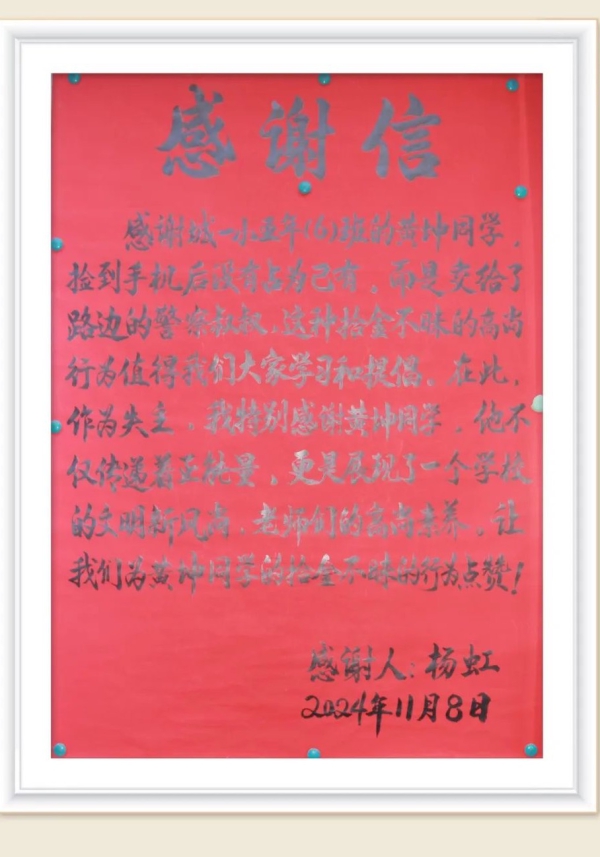 感谢信
感谢城一小五年(6)班的黄坤同学，
捡到手机后没有占为己有。而是交给了
路边的警察叔叔，这种拾金不昧的高尚
行为值得我们大家学习和提倡。在此，
作为失主，我特别感谢黄坤同学，他不
仅传递着正能量，更是展现了一个学校
的文明新风尚、老师们的高尚素养。让
我们为黄坤同学的拾金不昧的行为点赞！
感谢人：杨虹
2024年11月8日